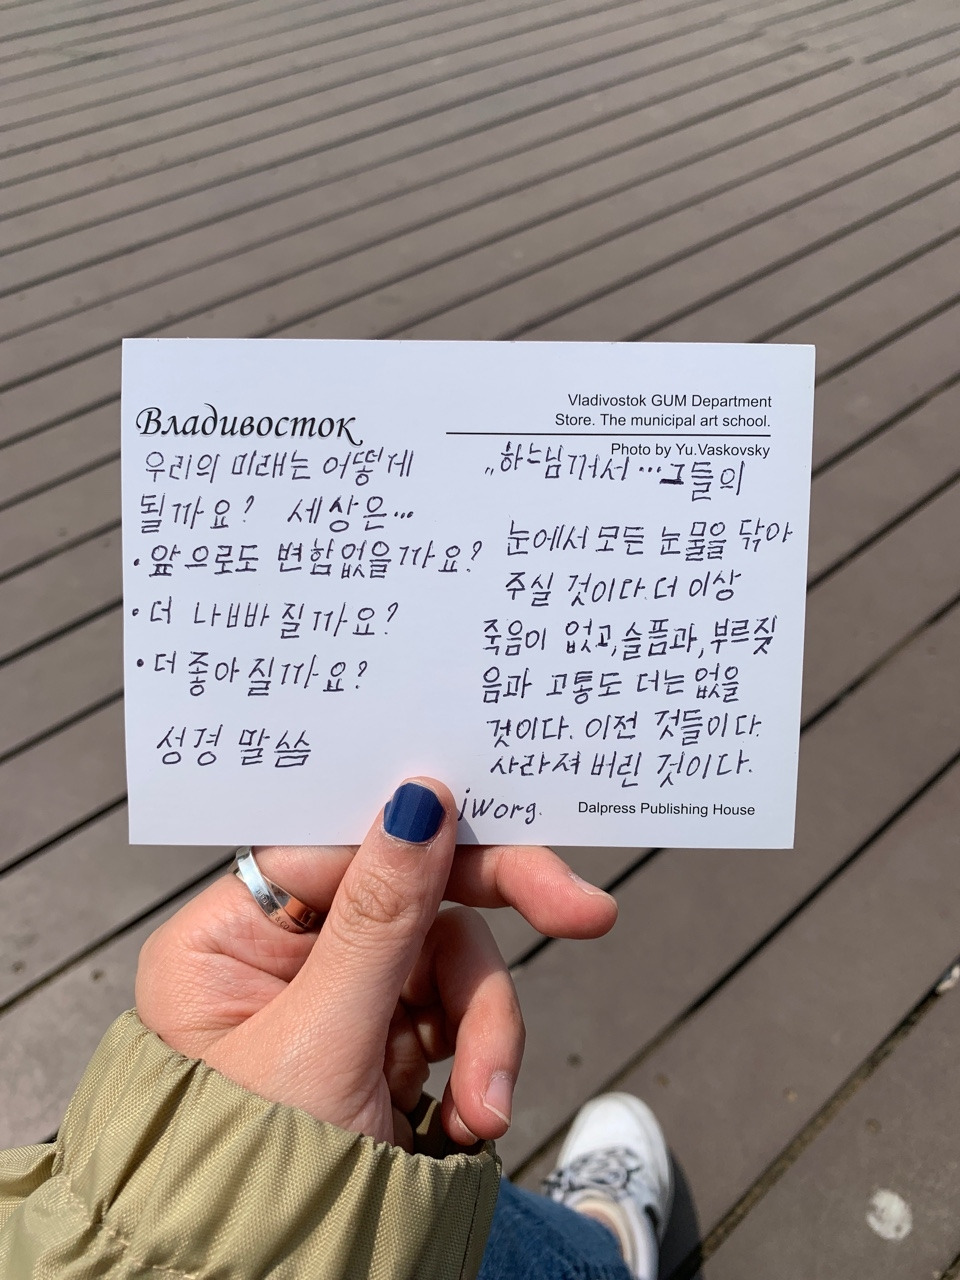 Владивосток
우리의 미래는 어떻게
될까요? 세상은...
• 앞으로도 변함없을까요?
• 더 나빠질까요?
• 더 좋아질까요?
성경 말씀
Vladivostok GUM Department
Store. The municipal art school.
Photo by Yu.Vaskovsky
„하느님께서...그들의
눈에서 모든 눈물을 닦아
주실 것이다. 더 이상
죽음이 없고, 슬픔과, 부르짖
음과 고통도 더는 없을
것이다. 이전 것들이 다
사라져 버린 것이다.
jw org.
Dalpress Publishing House